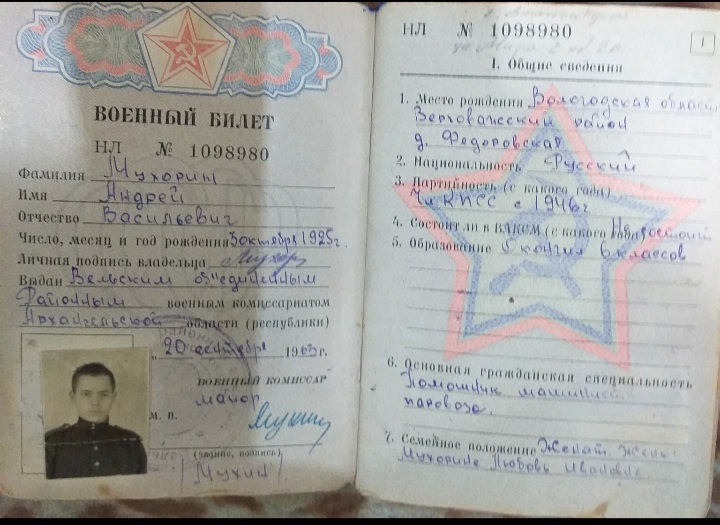 ВОЕННЫЙ БИЛЕТ
НЛ № 1098980
Фамилия Мухорин
Имя Андрей
Отчество Васильевич
Число, месяц и год рождения 5 октября 1925г.
Личная подпись владельца
Выдан Вельским объединенным
Районным военным комиссариатом
Архангельской области (республики)
„20 сентября 1963 г.
ВОЕННЫЙ КОМИССАР
майор
М. П.
(звание, подпись)
/Мухин/
НЛ № 1098980
1
I. Общие сведения
1. Место рождения Вологодская область
Верховажский район
д. Федоровская
2. Национальность Русский
3. Партийность (с какого года)
Чл КПСС с 1946г
4. Состоит ли в ВЛКСМ (с какого года) Не состоит
5. Образование Окончил 6 классов
6. Основная гражданская специальность
Помошник машинист
паровоза.
7. Семейное положение Женат. Жена
Мухорина Любовь Ивановна